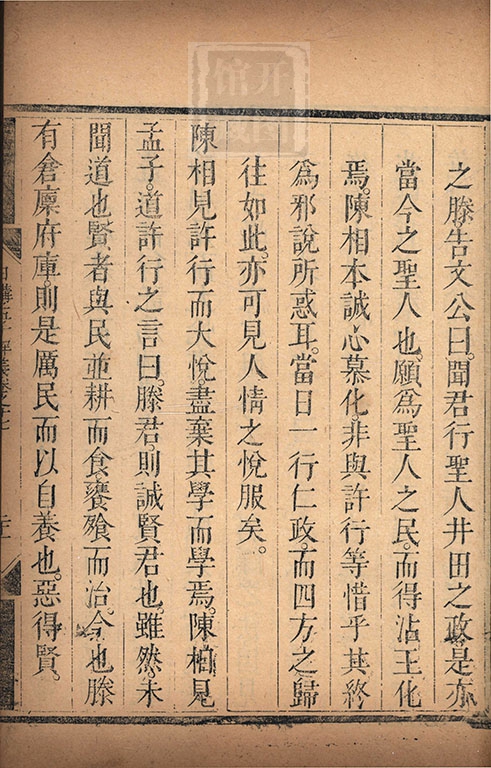 之滕告文公曰聞君行聖人井田之政是亦
當今之聖人也願爲聖人之民而得沾王化
焉陳相本誠心慕化非與許行等惜乎其終
爲邪說所惑耳當日一行仁政而四方之歸
往如此亦可見人情之悅服矣。
陳相見許行而大悅盡棄其學而學焉陳相見
孟子道許行之言曰滕君則誠賢君也雖然未
聞道也賢者與民並耕而食饔飧而治今也滕
有倉廩府庫則是厲民而以自養也惡得賢。